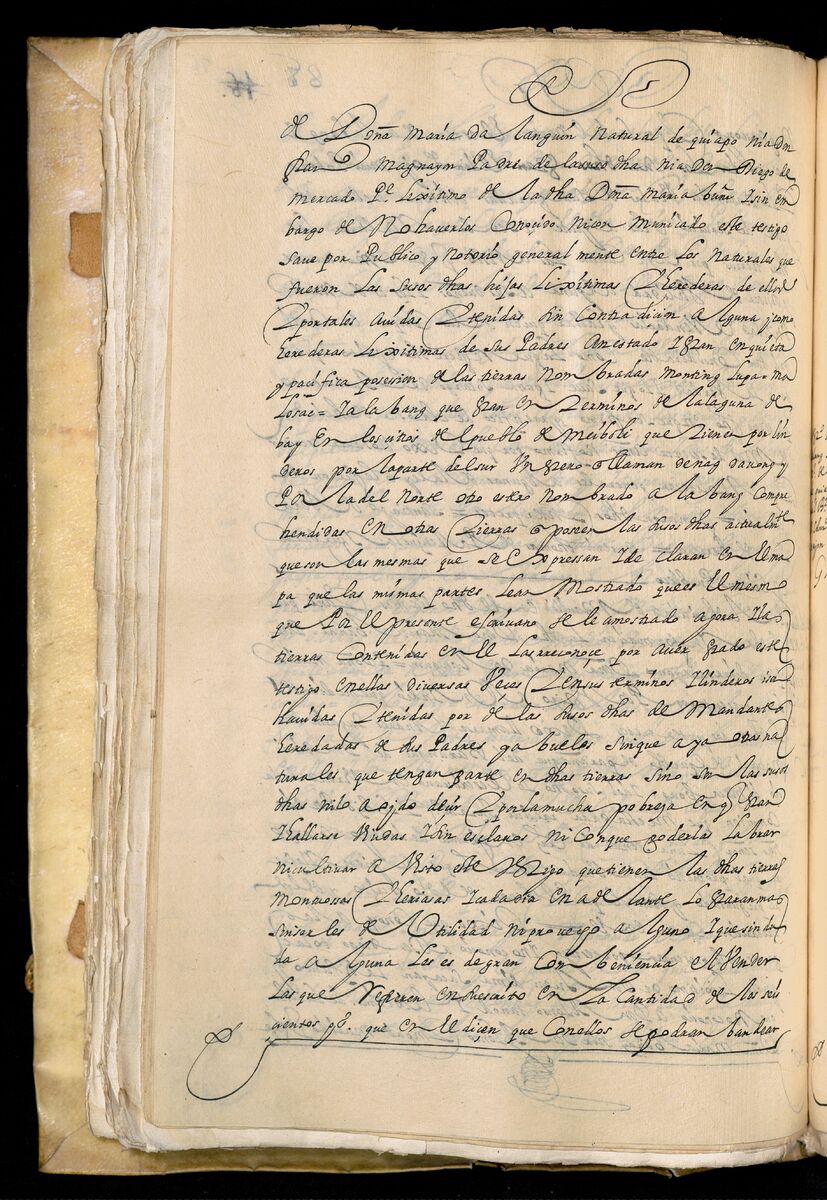 de Doña maría da languin natural de quiapo ni a Don
Magnaym Padre de la susodha ni a Don Diego de
mercado Pe. Lixítimo de la dha Doña maría bañi y sin em
bargo de No haverlos Conoçido ni con municado este testigo
save por Publico y notorio general mente entre los naturales que
fueron las susos dhas hijas Lixítimas y herederas de ellos
y por tales auidas y tenidas sin contradiçion alguna y como
herederas Lixitimas de sus Padres an estado y estan en quieta
y paçifica posession de las tierras nombradas monting Lupa = ma
losac = Yalabang que estan en terminos de la laguna de
bay En los sitios del pueblo de que tienen por lin
deros por la parte del sur Un estero q llaman de nag davong y
Por la del norte otro estero nombrado alabang Compre
hendidas en otras tierras q poseen las susos dhas actualmte
que son las mesmas que se Expressan y declaran en el ma
pa que las mismas partes le an Mostrado que es el mesmo
que Por el presente escriuano se le a mostrado agora y las
tierras Contenidas en el Las rreconoce por auer estado este
testigo en ellas diversas veces y en sus terminos y linderos
hauidas y tenidas por de las susos dhas de Mandantes
heredadas de sus Padres y abuelos sin que aya otros na
turales que tengan parte en dhas tierras sino son las susos
dhas ni lo a oydo deçir y por la mucha pobreza en q estan
y hallarse Viudas y sin esclavos ni con que poderlas labrar
ni cultiuar a Visto este testigo que tienen las dhas tierras
montuosas y heriasas y cada dia en adelante lo estaran mas
sin serles de Utilidad ni proveyo alguno y que sin du
da alguna les es de gran combeniencia el Vender
las que refieren en su escrito en la cantidad de los seis
cientos ps. que en el diçen que con ellos se podran bandear